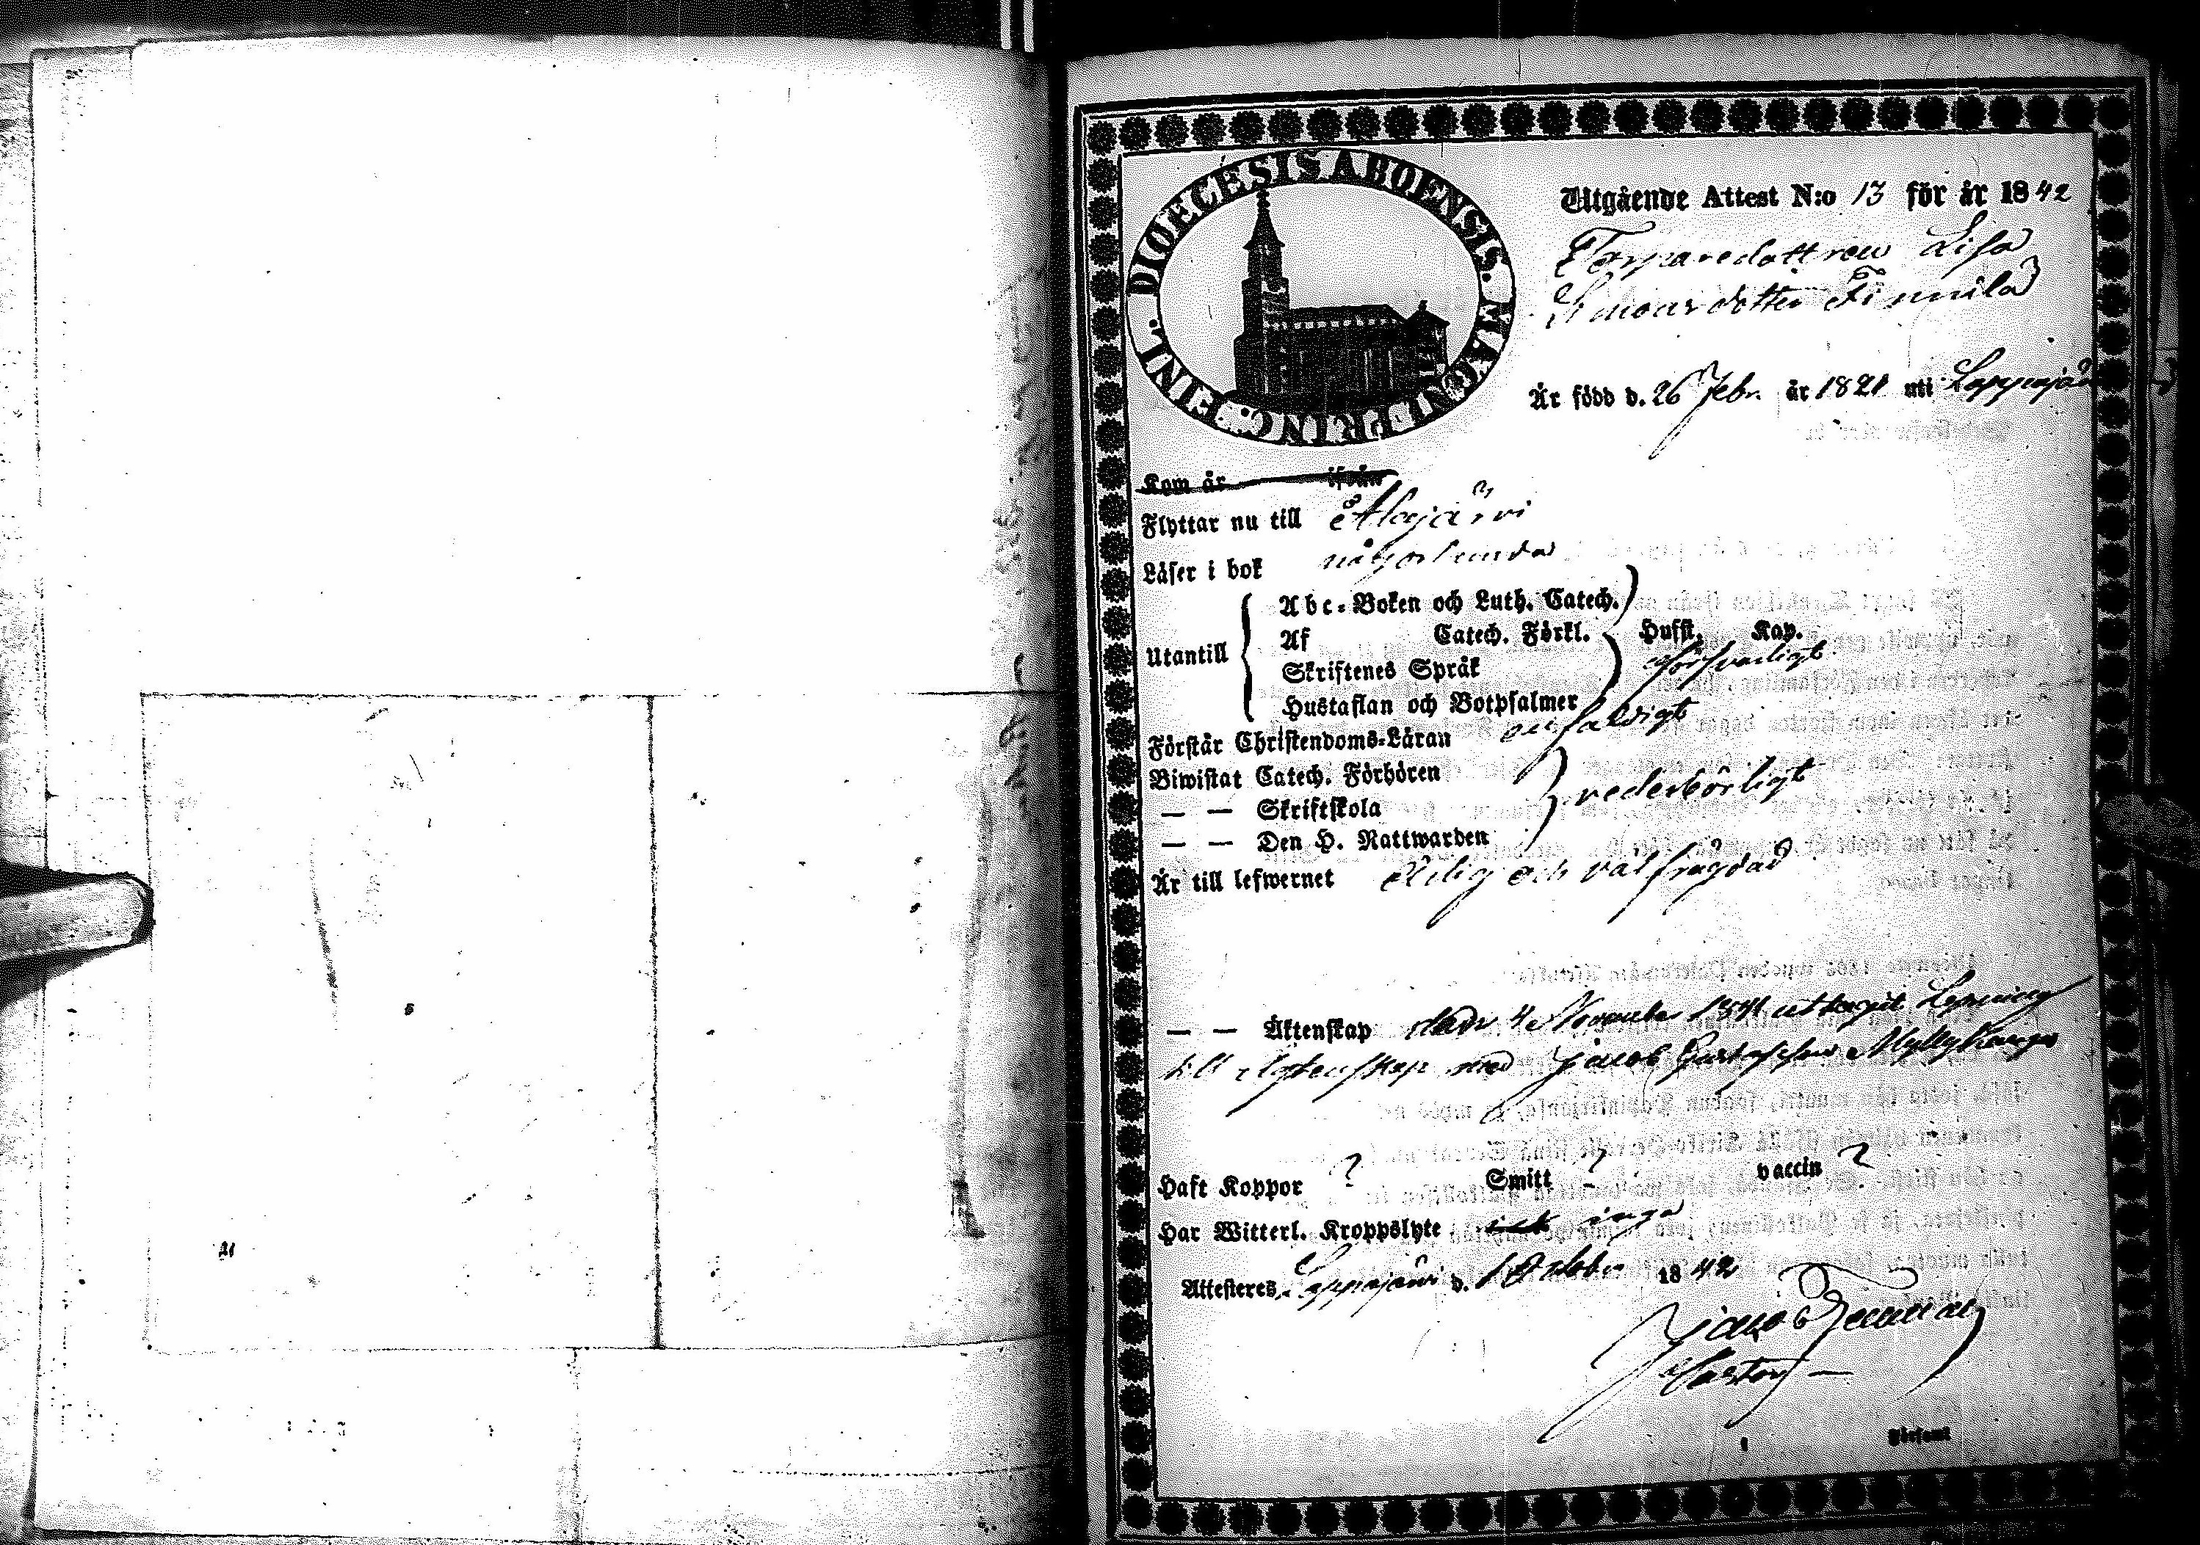 DIOECESIS ABOENSIS. MAGNI PRINC. FINL.
Utgående Attest N:o 13 för år 1842
Torparedottren Lisa
Simonsdotter Finnilä
Är född d. 26 Febr. år 1821 uti Lappajärvi
Kom år ifrån
Flyttar nu till Alajärvi
Läser i bok någorlunda
Utantill
Abc-Boken och Luth. Catech.
Af Catech. Förkl. Hufst. Kap.
Skriftenes Språk försvarligt
Hustaflan och Botpsalmer
Förstår Christendoms-Läran enfaldigt
Biwistat Catech. Förhören
— — Skriftskola vederbörligt
— — Den H. Nattwarden
Är till lefwernet Ärlig och välfrägdad
— — Äktenskap den 4 November 1841 uttagit Lysning
till Ägtenskap med Jacob Gustafsson Myllykangas
Haft Koppor ? Smitt ? vaccin ?
Har Witterl. Kroppslyte inga
Attesteres Lappajärvi d. 1 October 1842
Jacob
Pastor
Församl